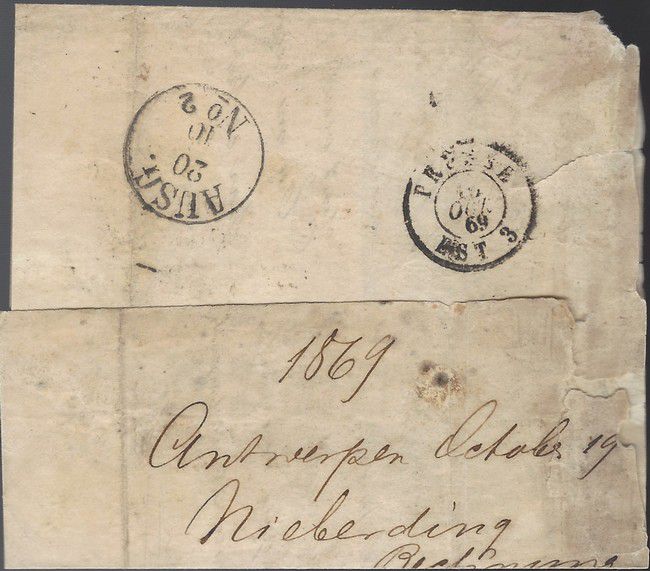 AUSG.
20
10
No 2
PRUSSE
OCT
69
EST 3
1869
Antwerpen October 19
Nieberding
Rechnung